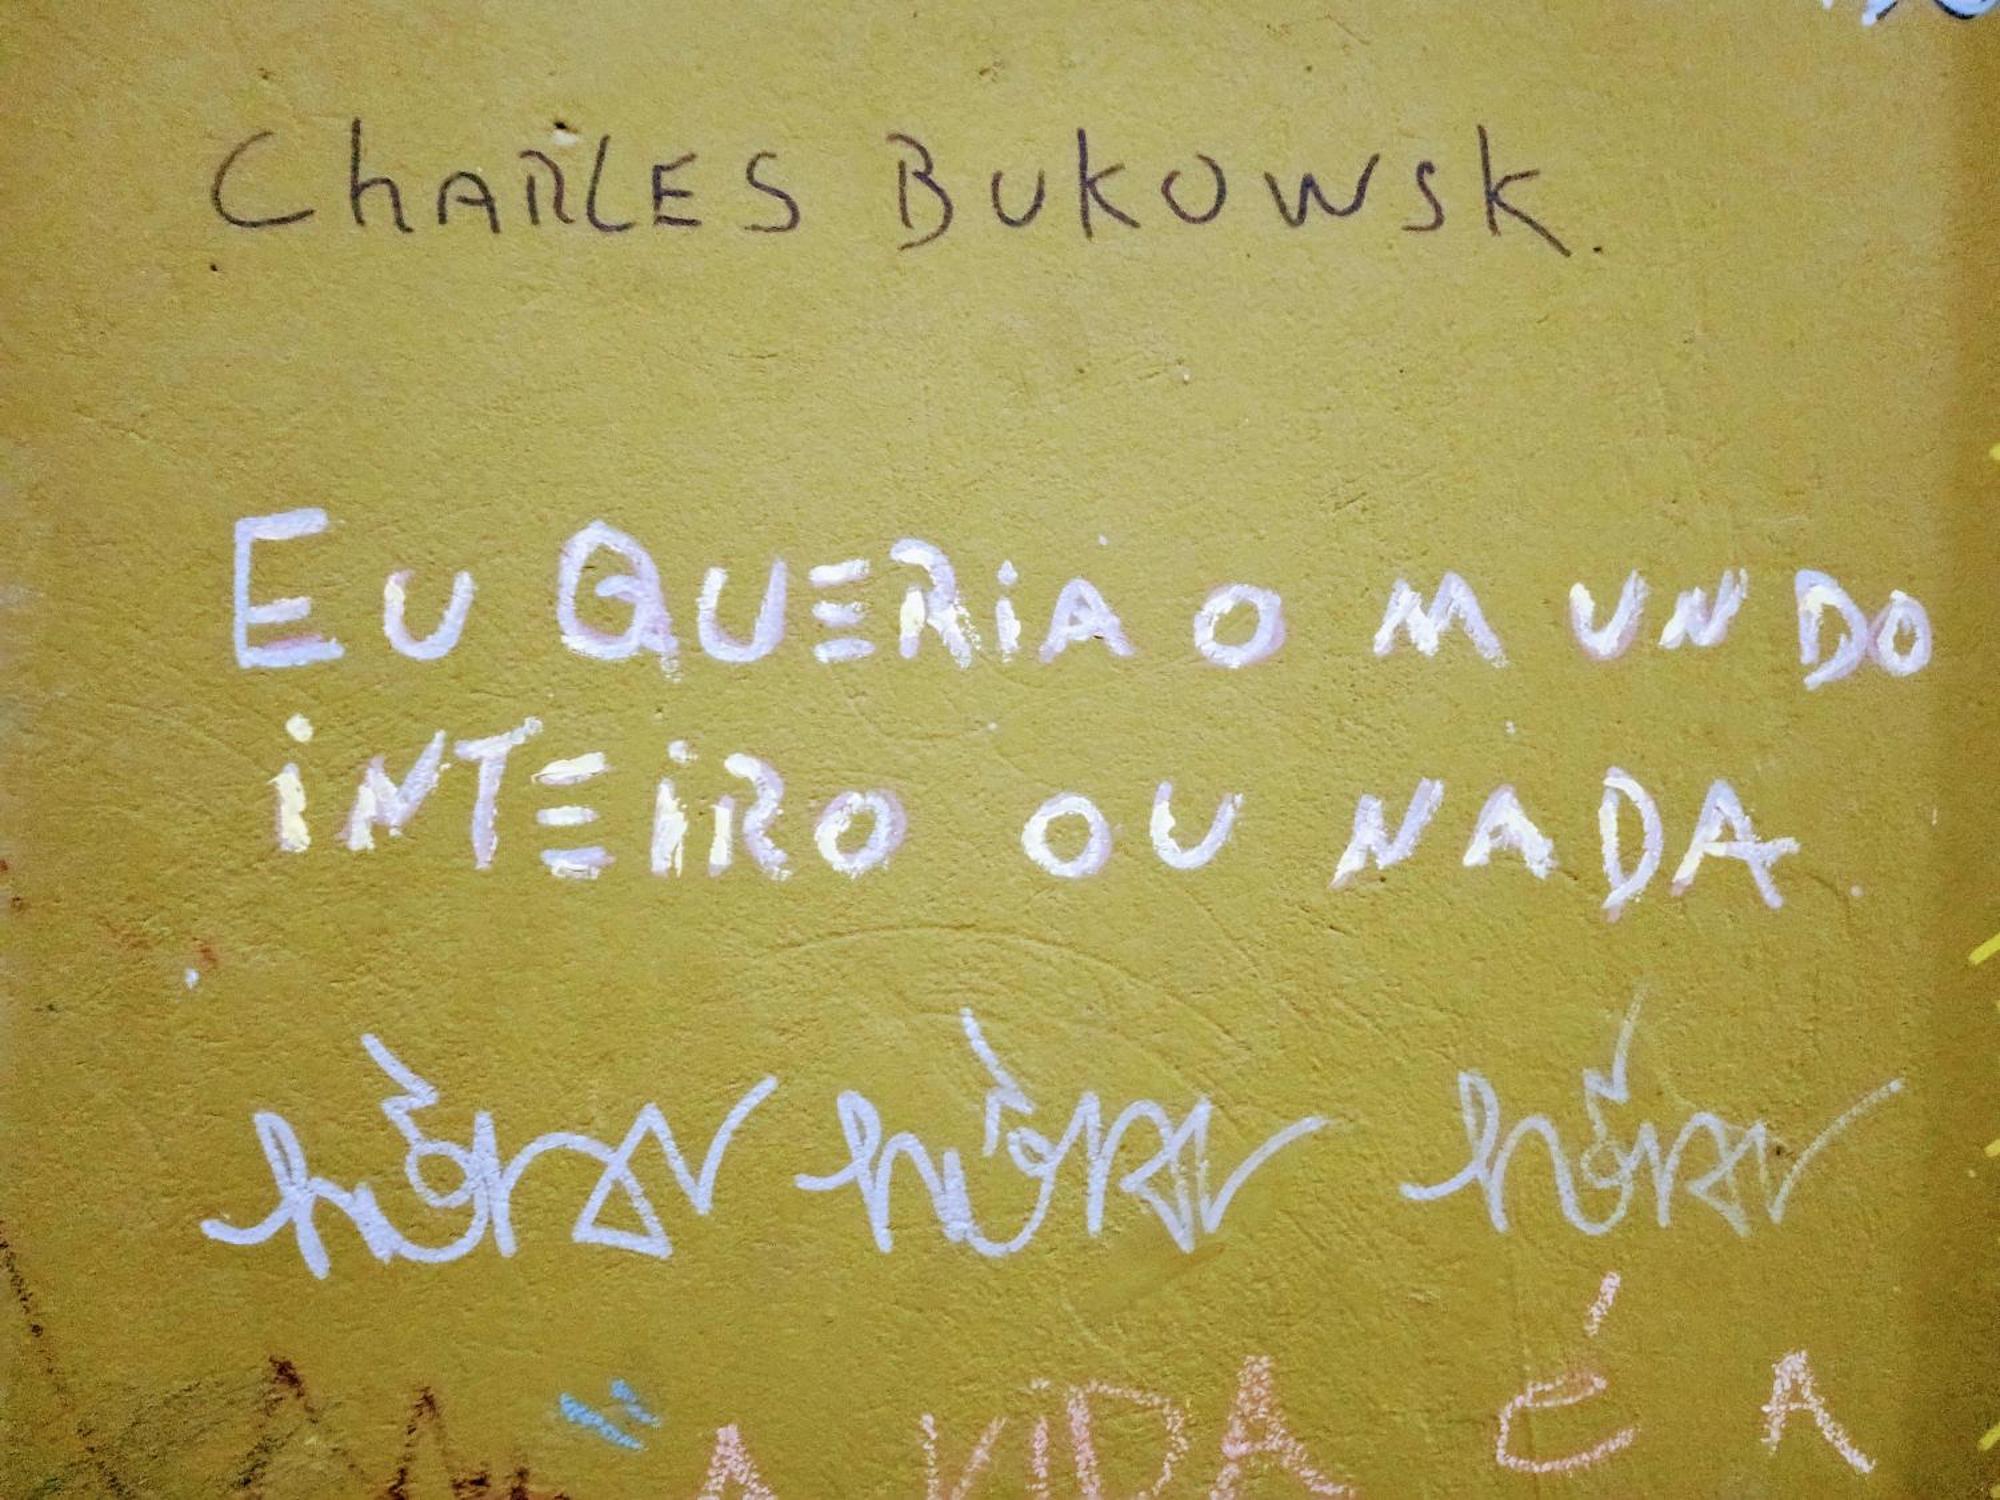 CHARLES BUKOWSK.
EU QUERIA O MUNDO
INTEIRO OU NADA
" A VIDA É A